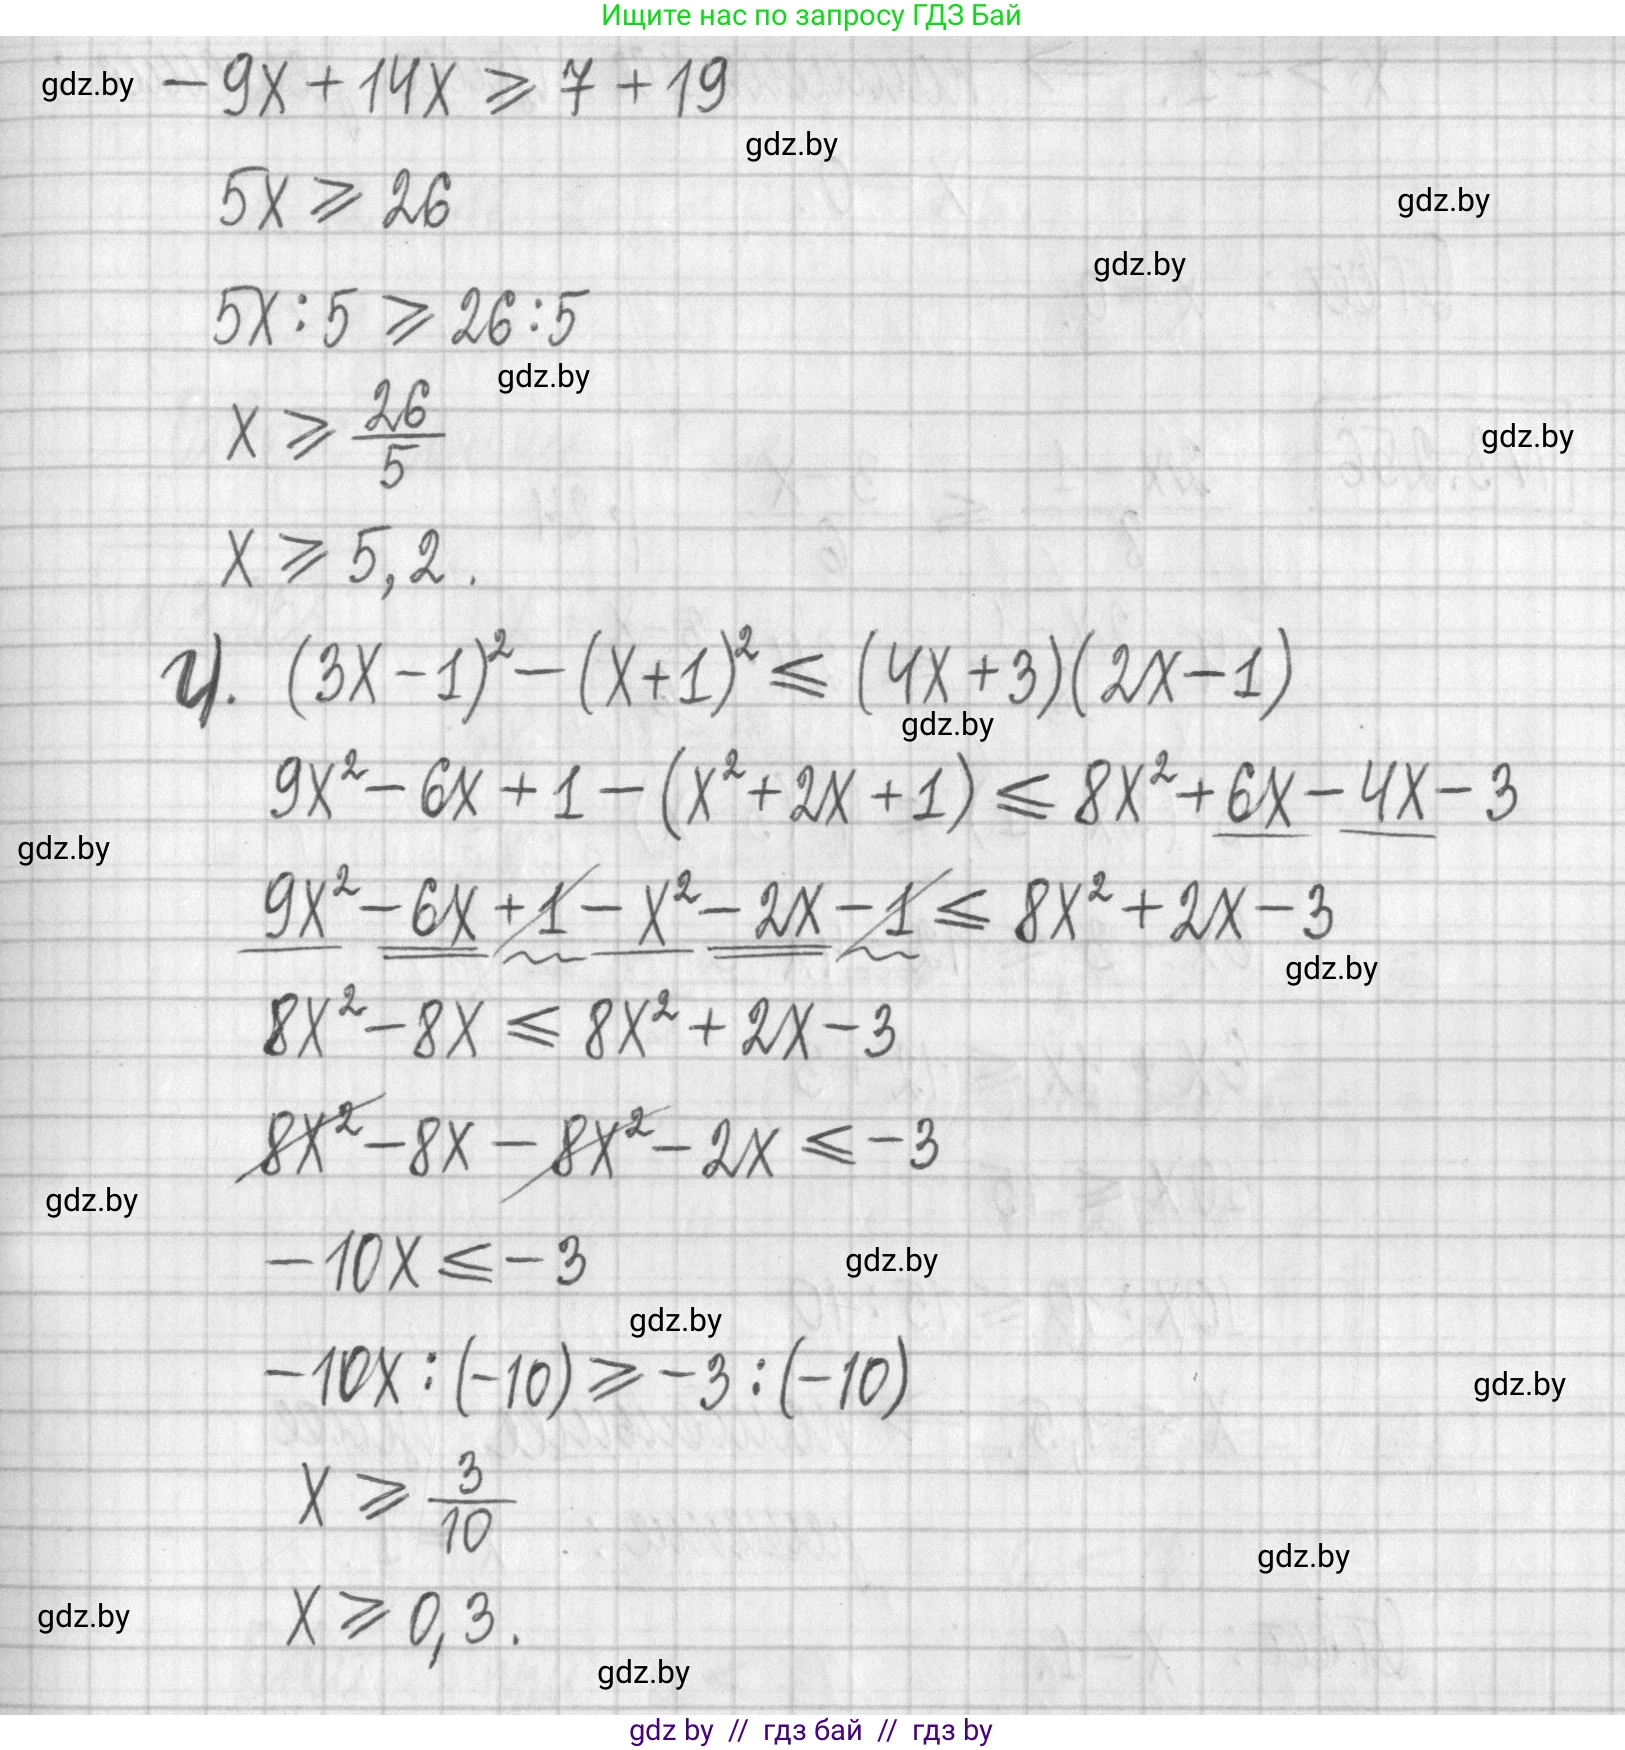 Ищите нас по запросу ГДЗ Бай
gdz.by
-9x + 14x ⩾ 7 + 19
gdz.by
5x ⩾ 26
gdz.by
gdz.by
5x : 5 ⩾ 26 : 5
gdz.by
x ⩾ 26/5
gdz.by
x ⩾ 5,2.
г). (3x - 1)² - (x + 1)² ⩽ (4x + 3)(2x - 1)
gdz.by
9x² - 6x + 1 - (x² + 2x + 1) ⩽ 8x² + 6x - 4x - 3
gdz.by
9x² - 6x + 1 - x² - 2x - 1 ⩽ 8x² + 2x - 3
gdz.by
8x² - 8x ⩽ 8x² + 2x - 3
8x² - 8x - 8x² - 2x ⩽ -3
gdz.by
-10x ⩽ -3
gdz.by
gdz.by
-10x : (-10) ⩾ -3 : (-10)
gdz.by
x ⩾ 3/10
gdz.by
x ⩾ 0,3.
gdz.by
gdz.by
gdz by // гдз бай // гдз by